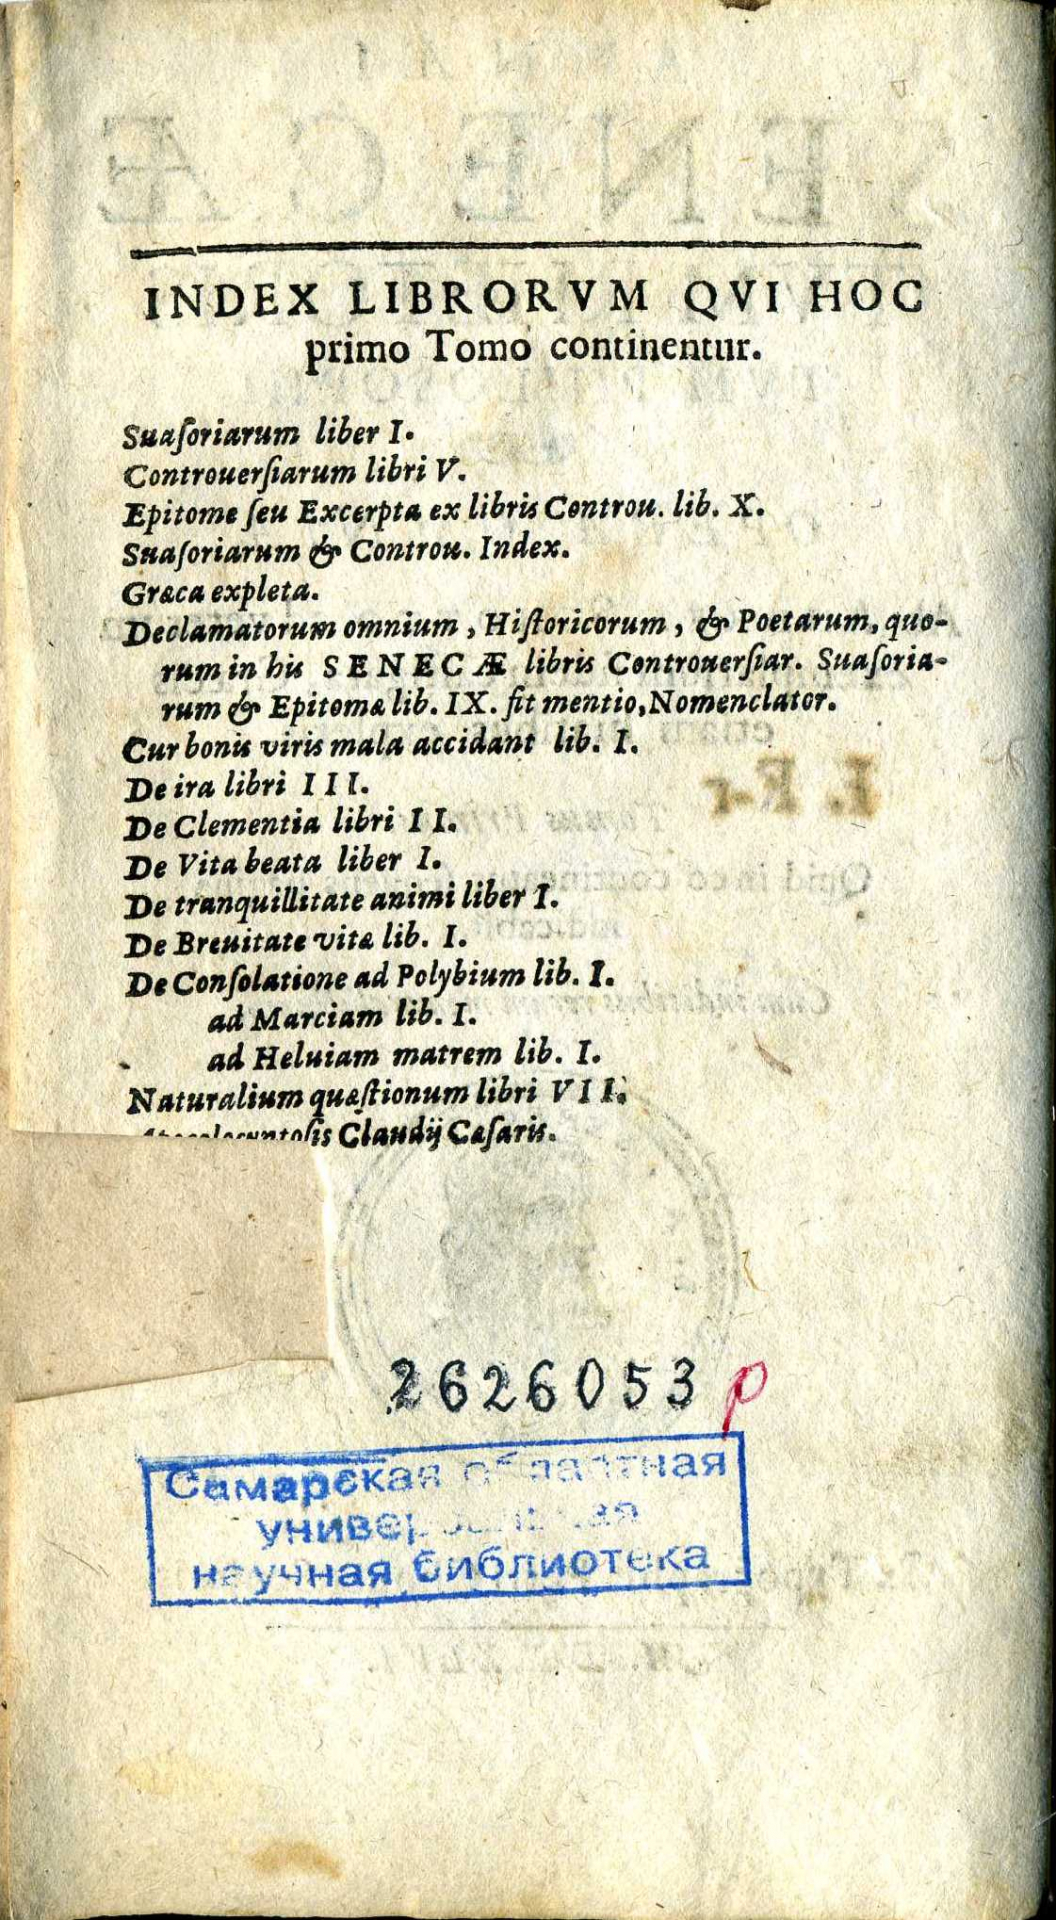 INDEX LIBRORVM QVI HOC
primo Tomo continentur.
Suaſoriarum liber I.
Controuerſiarum libri V.
Epitome ſeu Excerpta ex libris Controu. lib. X.
Suaſoriarum & Controu. Index.
Græca expleta.
Declamatorum omnium, Hiſtoricorum, & Poetarum, quo-
rum in his SENECÆ libris Controuerſiar. Suaſoria-
rum & Epitomæ lib. IX. fit mentio, Nomenclator.
Cur bonis viris mala accidant lib. I.
De ira libri III.
De Clementia libri II.
De Vita beata liber I.
De tranquillitate animi liber I.
De Breuitate vitæ lib. I.
De Conſolatione ad Polybium lib. I.
ad Marciam lib. I.
ad Heluiam matrem lib. I.
Naturalium quæſtionum libri VII.
Claudij Cæſaris.
2626053 p
Самарская областная
научная библиотека